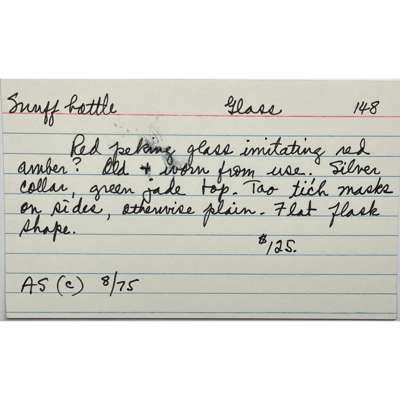 Snuff bottle Glass 148
Red peking glass imitating red
amber? Old + worn from use. Silver
collar, green jade top. Tao tích masks
on sides, otherwise plain. Flat flask
shape.
$125.
AS (c) 8/75